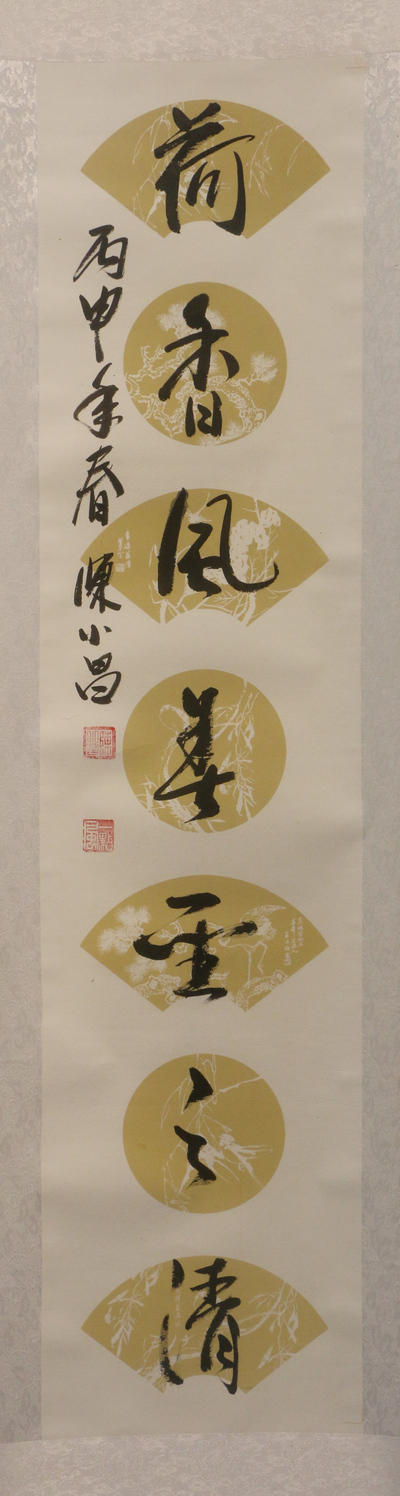 荷香風善聖之清
丙申年春陳小昌